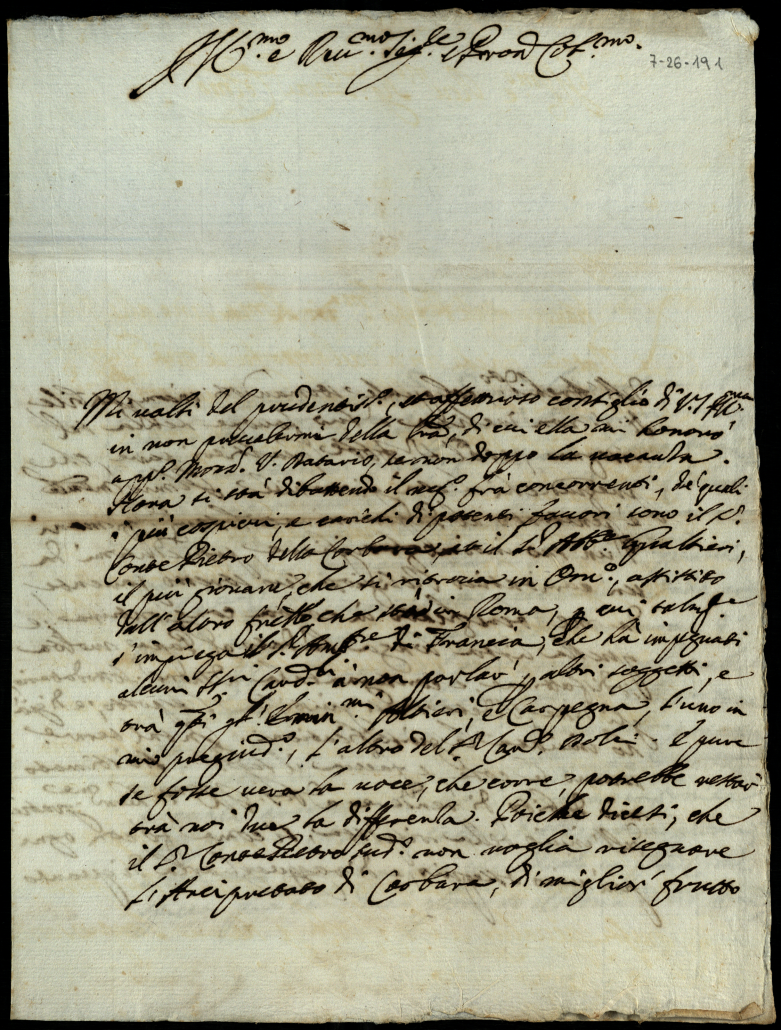 Ill.mo e Rev.mo Sig.re e Pron Col.mo
7-26-191
Mi valsi del prudentiss.o, et affettuoso consiglio di V.S. Ill.ma
in non prevalermi della l'ra, di cui ella mi honorò
app.o Mons.r V. Datario, se non doppo la vacanza.
Hora si stà dibattendo il neg.o frà concorrenti, de' quali
i più cospicui, e carichi di potenti favori sono il S.r
Conte Pietro della Corbara, et il S.r Abb.e Gualtieri,
il più giovane, che si ritrova in Orv.o, assistito
dall'altro fratello che stà in Roma, p cui
s'impiega il S.r Amb.re di Francia, che hà impegnati
alcuni SS.ri Card.li à non parlar p altri soggetti, e
trà q.ti gl'Emin.mi Altieri, e Carpegna, l'uno in
mio pregiud.o, l'altro del S.r Card.
se fosse vera la voce, che corre, potrebbe restar
trà noi due la differenza. Poiche dicesi, che
il S.r Conte Pietro sud.o non voglia risegnare
l'Arcipretato di Corbara, di miglior frutto